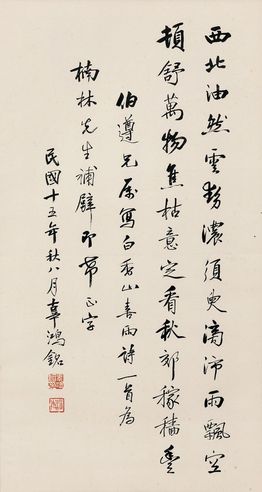 西北油然雲勢濃須臾滂沛雨飄空
頓舒萬物焦枯意定看秋郊稼穡豐
伯遵兄屬寫白香山喜雨詩一首為
楠林先生補壁即希正字
民國十五年秋八月辜鴻銘